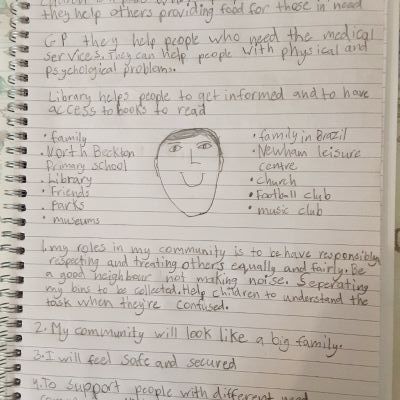 they help others providing food for those in need
GP they help people who need the medical
services. They can help people with physical and
psychological problems.
Library helps people to get informed and to have
access to books to read
• family
• North Beckton
Primary school
• Library
• Friends
• Parks
• museums
• family in Brazil
• Newham leisure
centre
• church
• Football club
• music club
1. my roles in my community is to behave responsibly
respecting and treating others equally and fairly. Be
a good neighbour not making noise. Seperating
my bins to be collected. Help children to understand the
task when they're confused.
2. My community will look like a big family.
3. I will feel safe and secured
4. To support people with different need